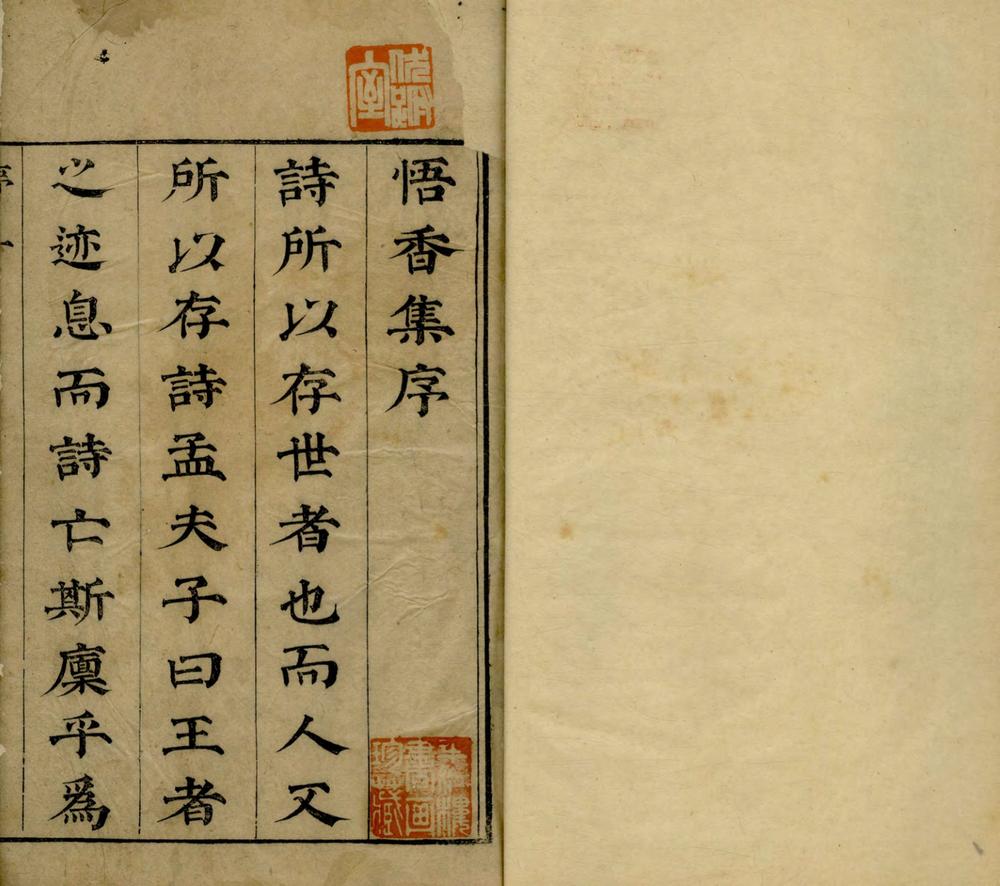 悟香集序
詩所以存世者也而人又
所以存詩孟夫子曰王者
之迹息而詩亡斯廩乎爲
書画
珍藏